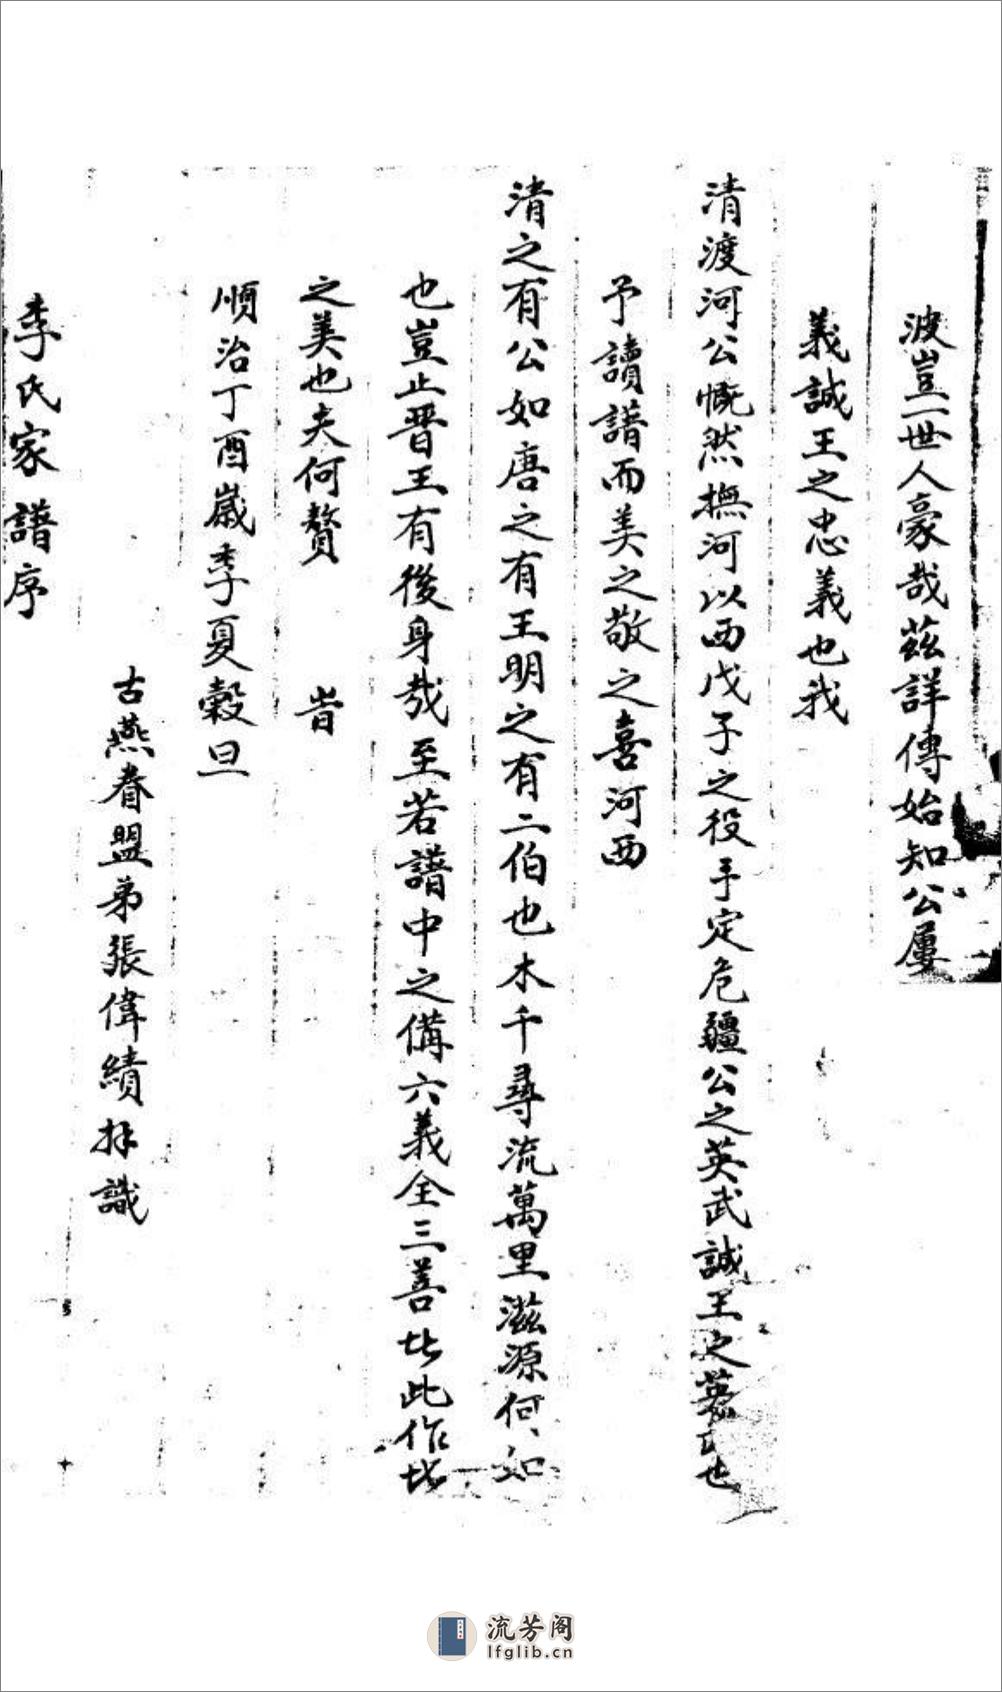 波豈一世人豪哉茲詳傳始知公屢
義誠王之忠義也我
清渡河公慨然撫河以西戊子之役手定危疆公之英武誠王之英武也
予讀譜而美之敬之喜河西
清之有公如唐之有王明之有二伯也木千尋流萬里滋源何如
也豈止晋王有後身哉至若譜中之備六義全三善比此作比
之美也夫何贅 旹
順治丁酉歲季夏穀旦
古燕眷盟弟張偉績拜識
李氏家譜序
流芳阁
lfglib.cn